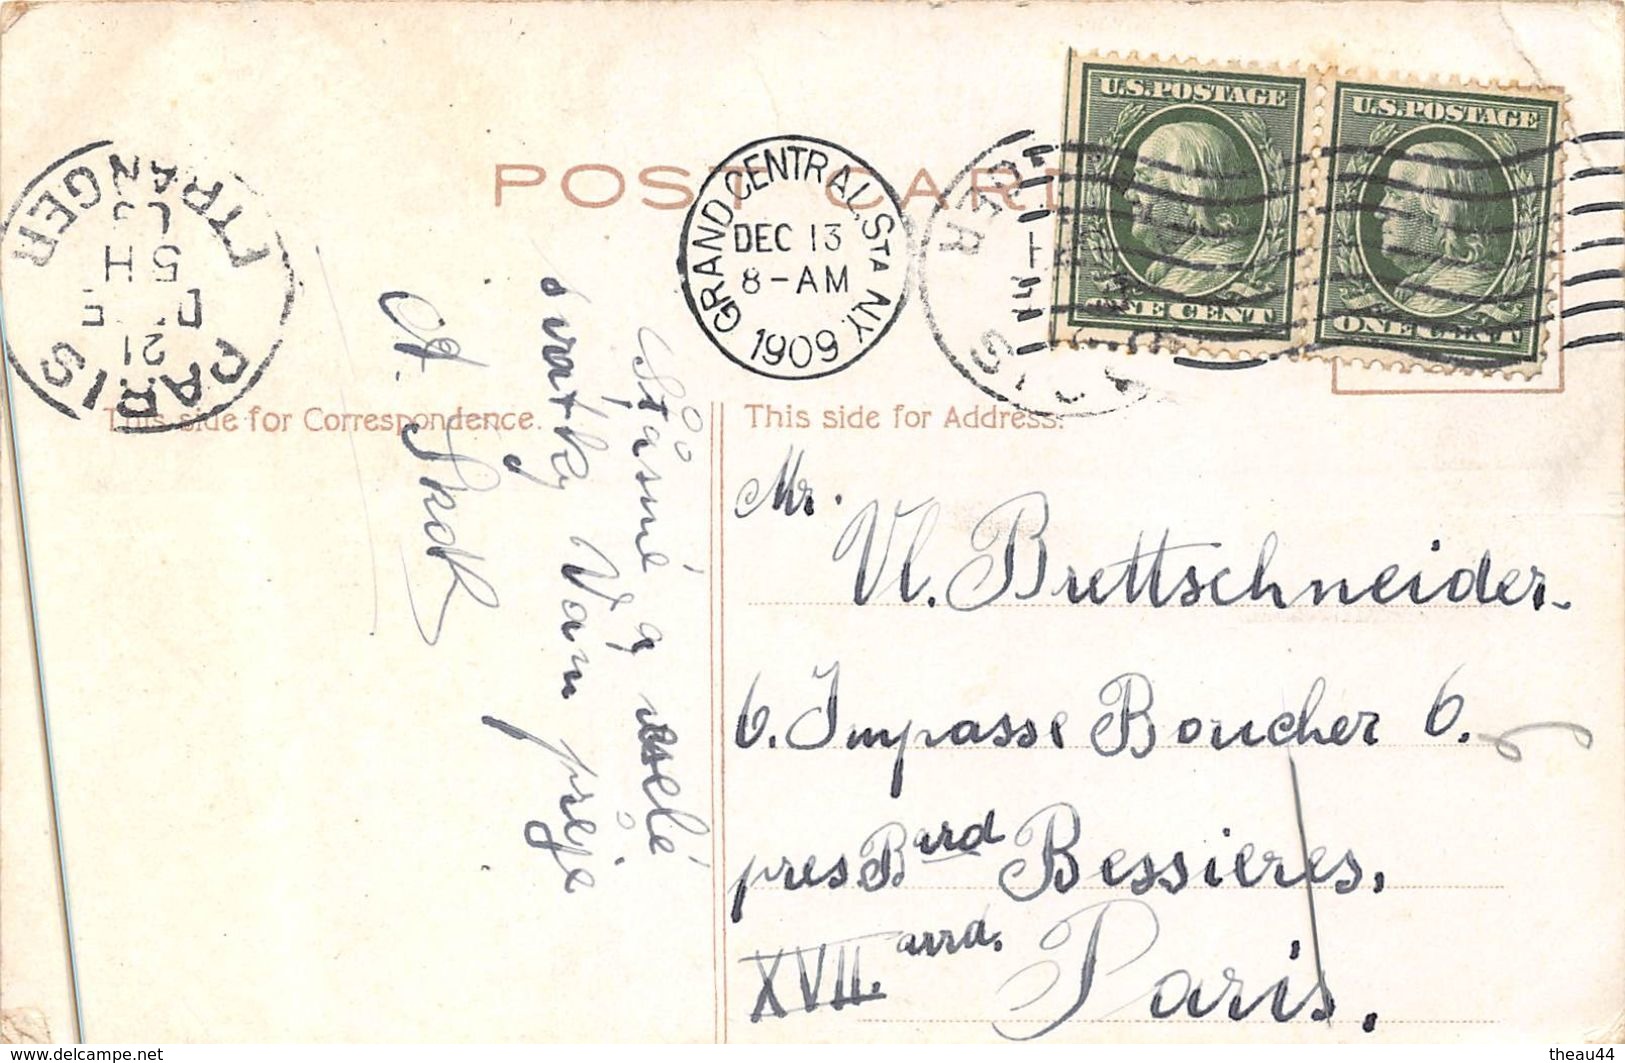 POST CARD
U.S.POSTAGE
ONE CENT
U.S.POSTAGE
ONE CENT
GRAND CENTRAL STA N.Y.
DEC 13
8-AM
1909
PARIS
ETRANGER
21
5H
This side for Correspondence.
This side for Address.
Šťásné a veselé
svátky Vám přeje
A.
Mr.
Vl. Brettschneider.
6. Impasse Boucher 6.
pres Bard Bessieres,
XVII. arrd. Paris.
www.delcampe.net
theau44